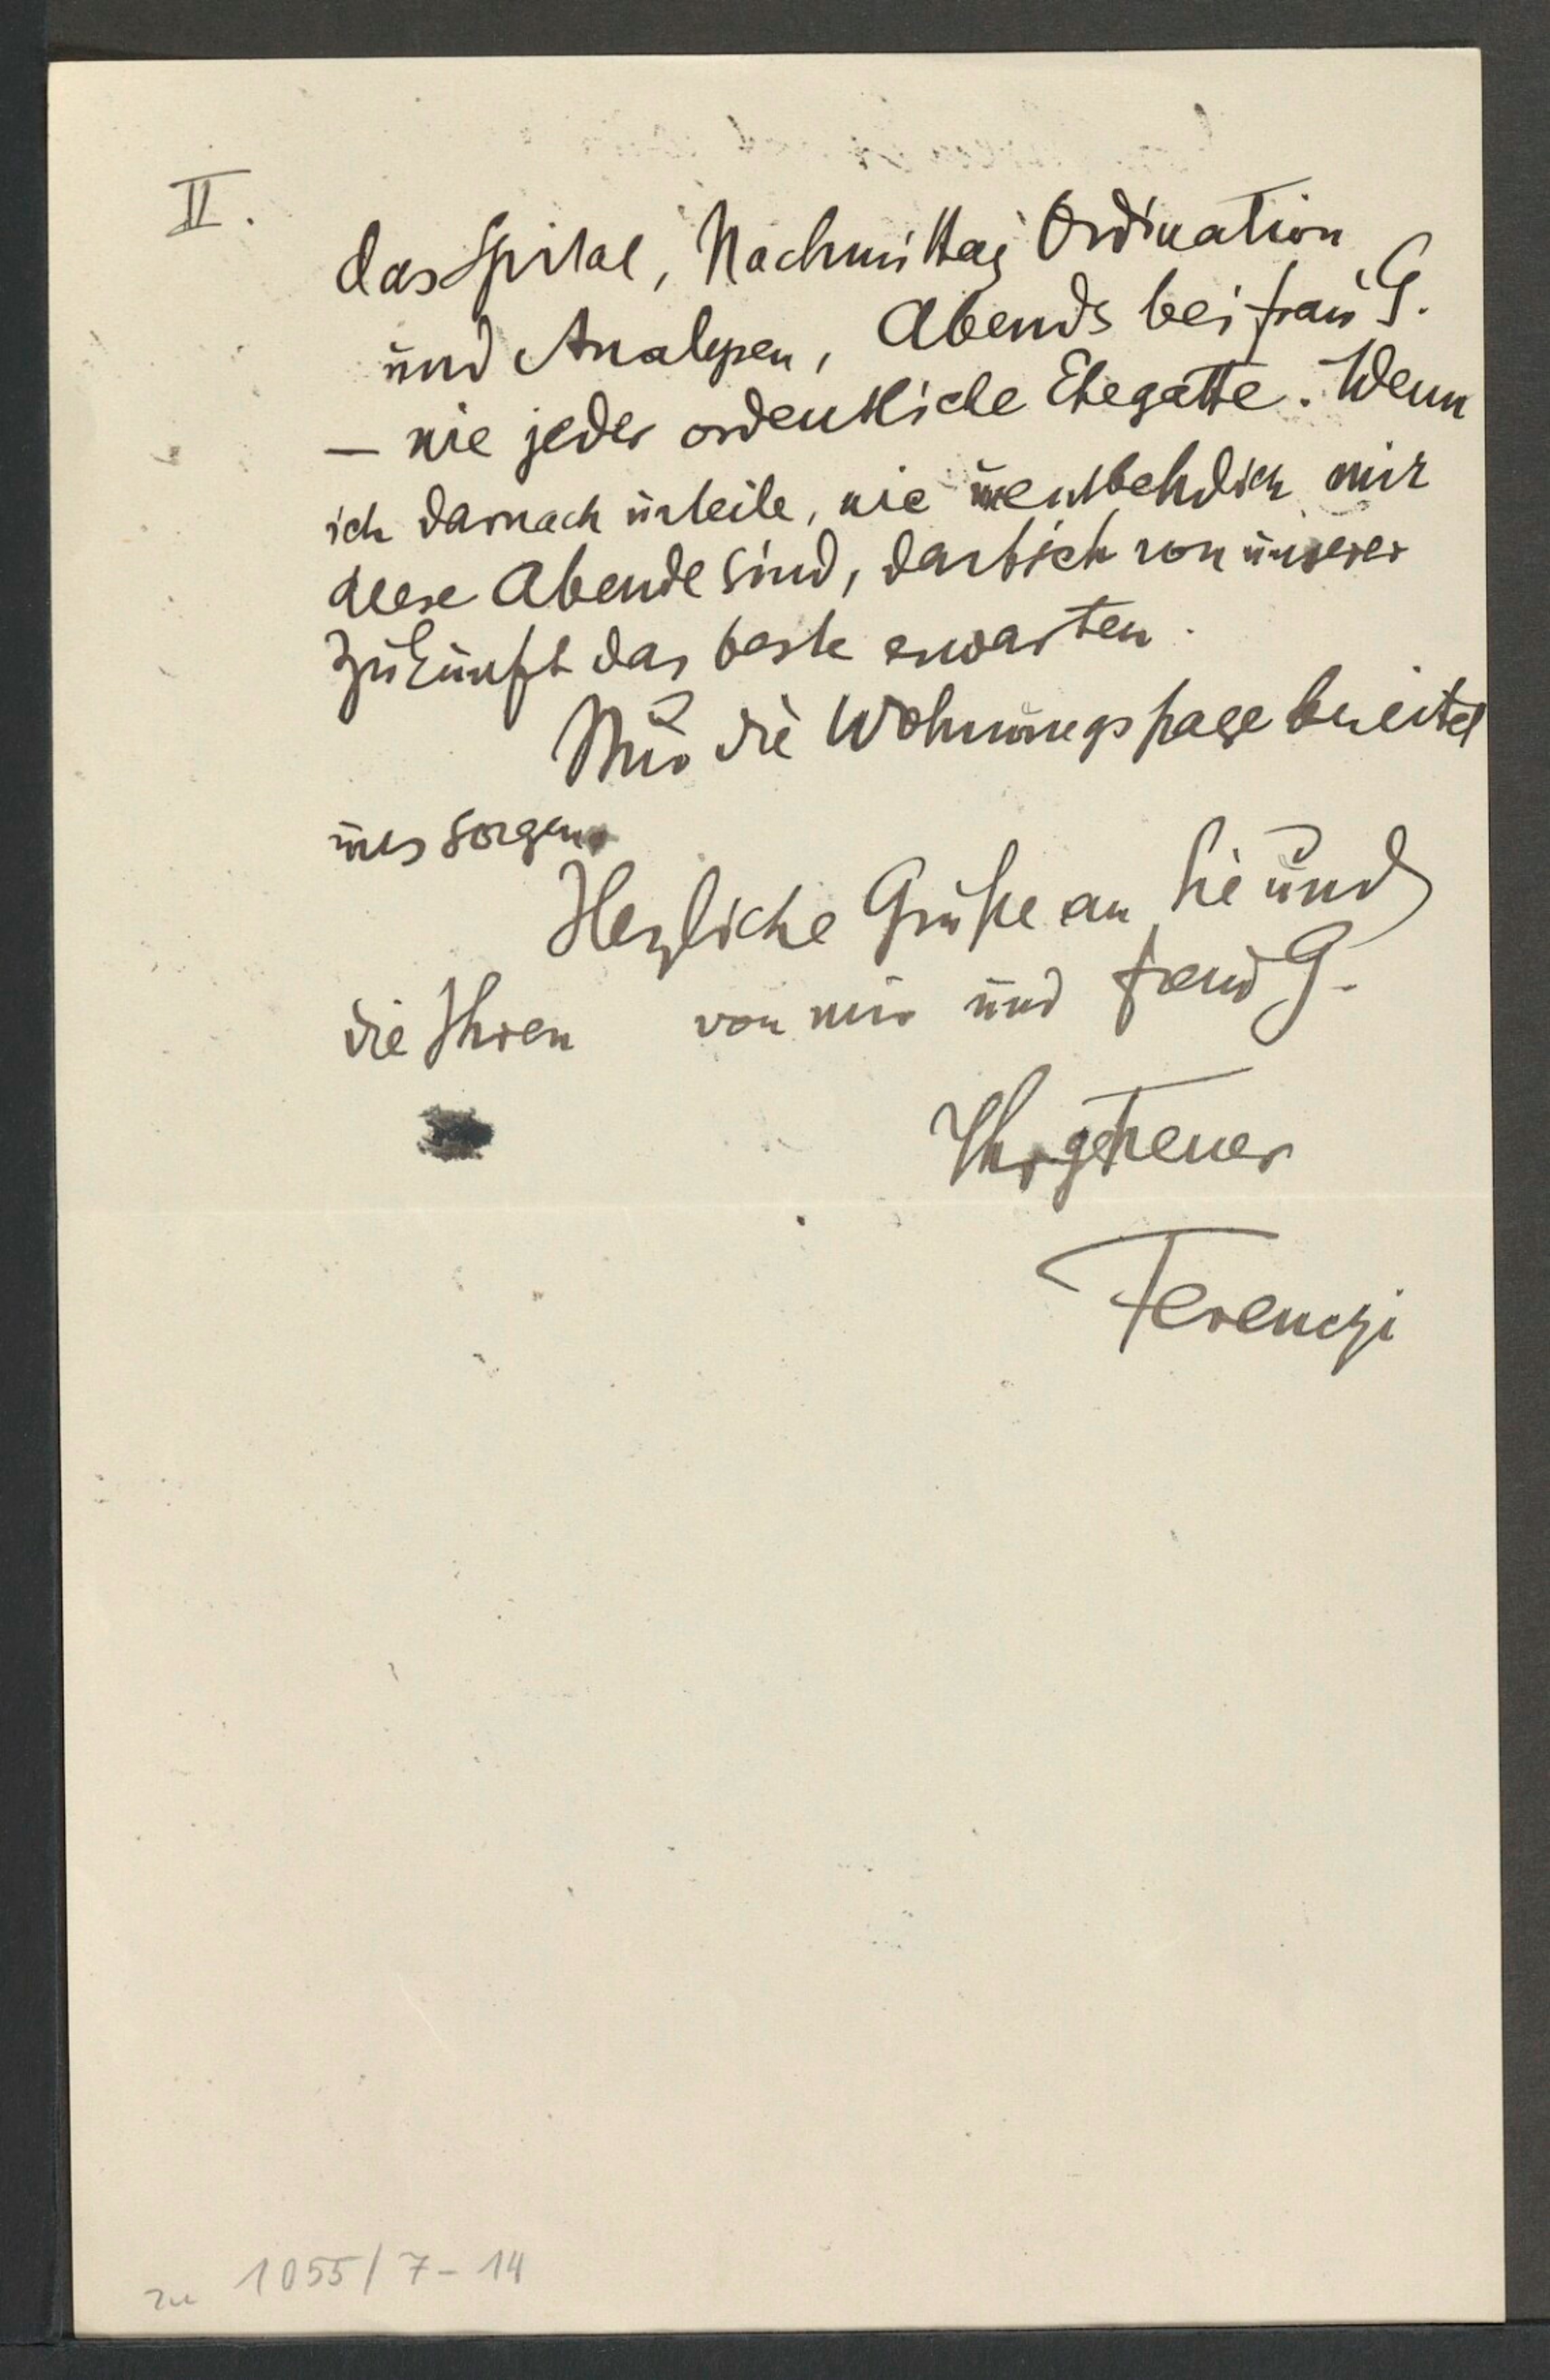 II.
das Spital, Nachmittag Ordination
und Analysen, Abends bei Frau G.
— wie jeder ordentliche Ehegatte. Wenn
ich darnach urteile, wie unentbehrlich mir
diese Abende sind, darf ich von unserer
Zukunft das beste erwarten.
Nur die Wohnungsfrage bereitet
uns Sorgen.
Herzliche Grüße an Sie und
die Ihren von mir und Frau G.
Ihr getreuer
Ferenczi
zu 1055/7-14